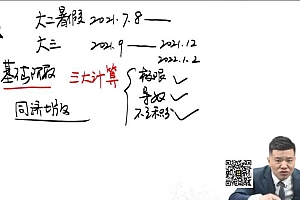 大二暑假 2021.7.8——
大三 2021.9——2021.12
2022.1.2
基础沉配 三大计算 极限✓
导数✓
不定积分✓
同济七版